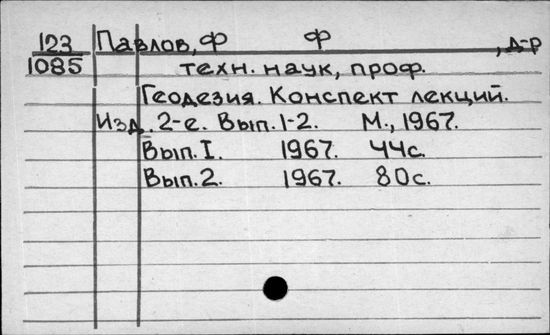 123 Павлов, Ф Ф , д-р
1085 техн. наук, проф.
Геодезия. Конспект лекций.
Изд. 2-е. Вып. 1-2. М., 1967.
Вып. I. 1967. 44с.
Вып. 2. 1967. 80с.